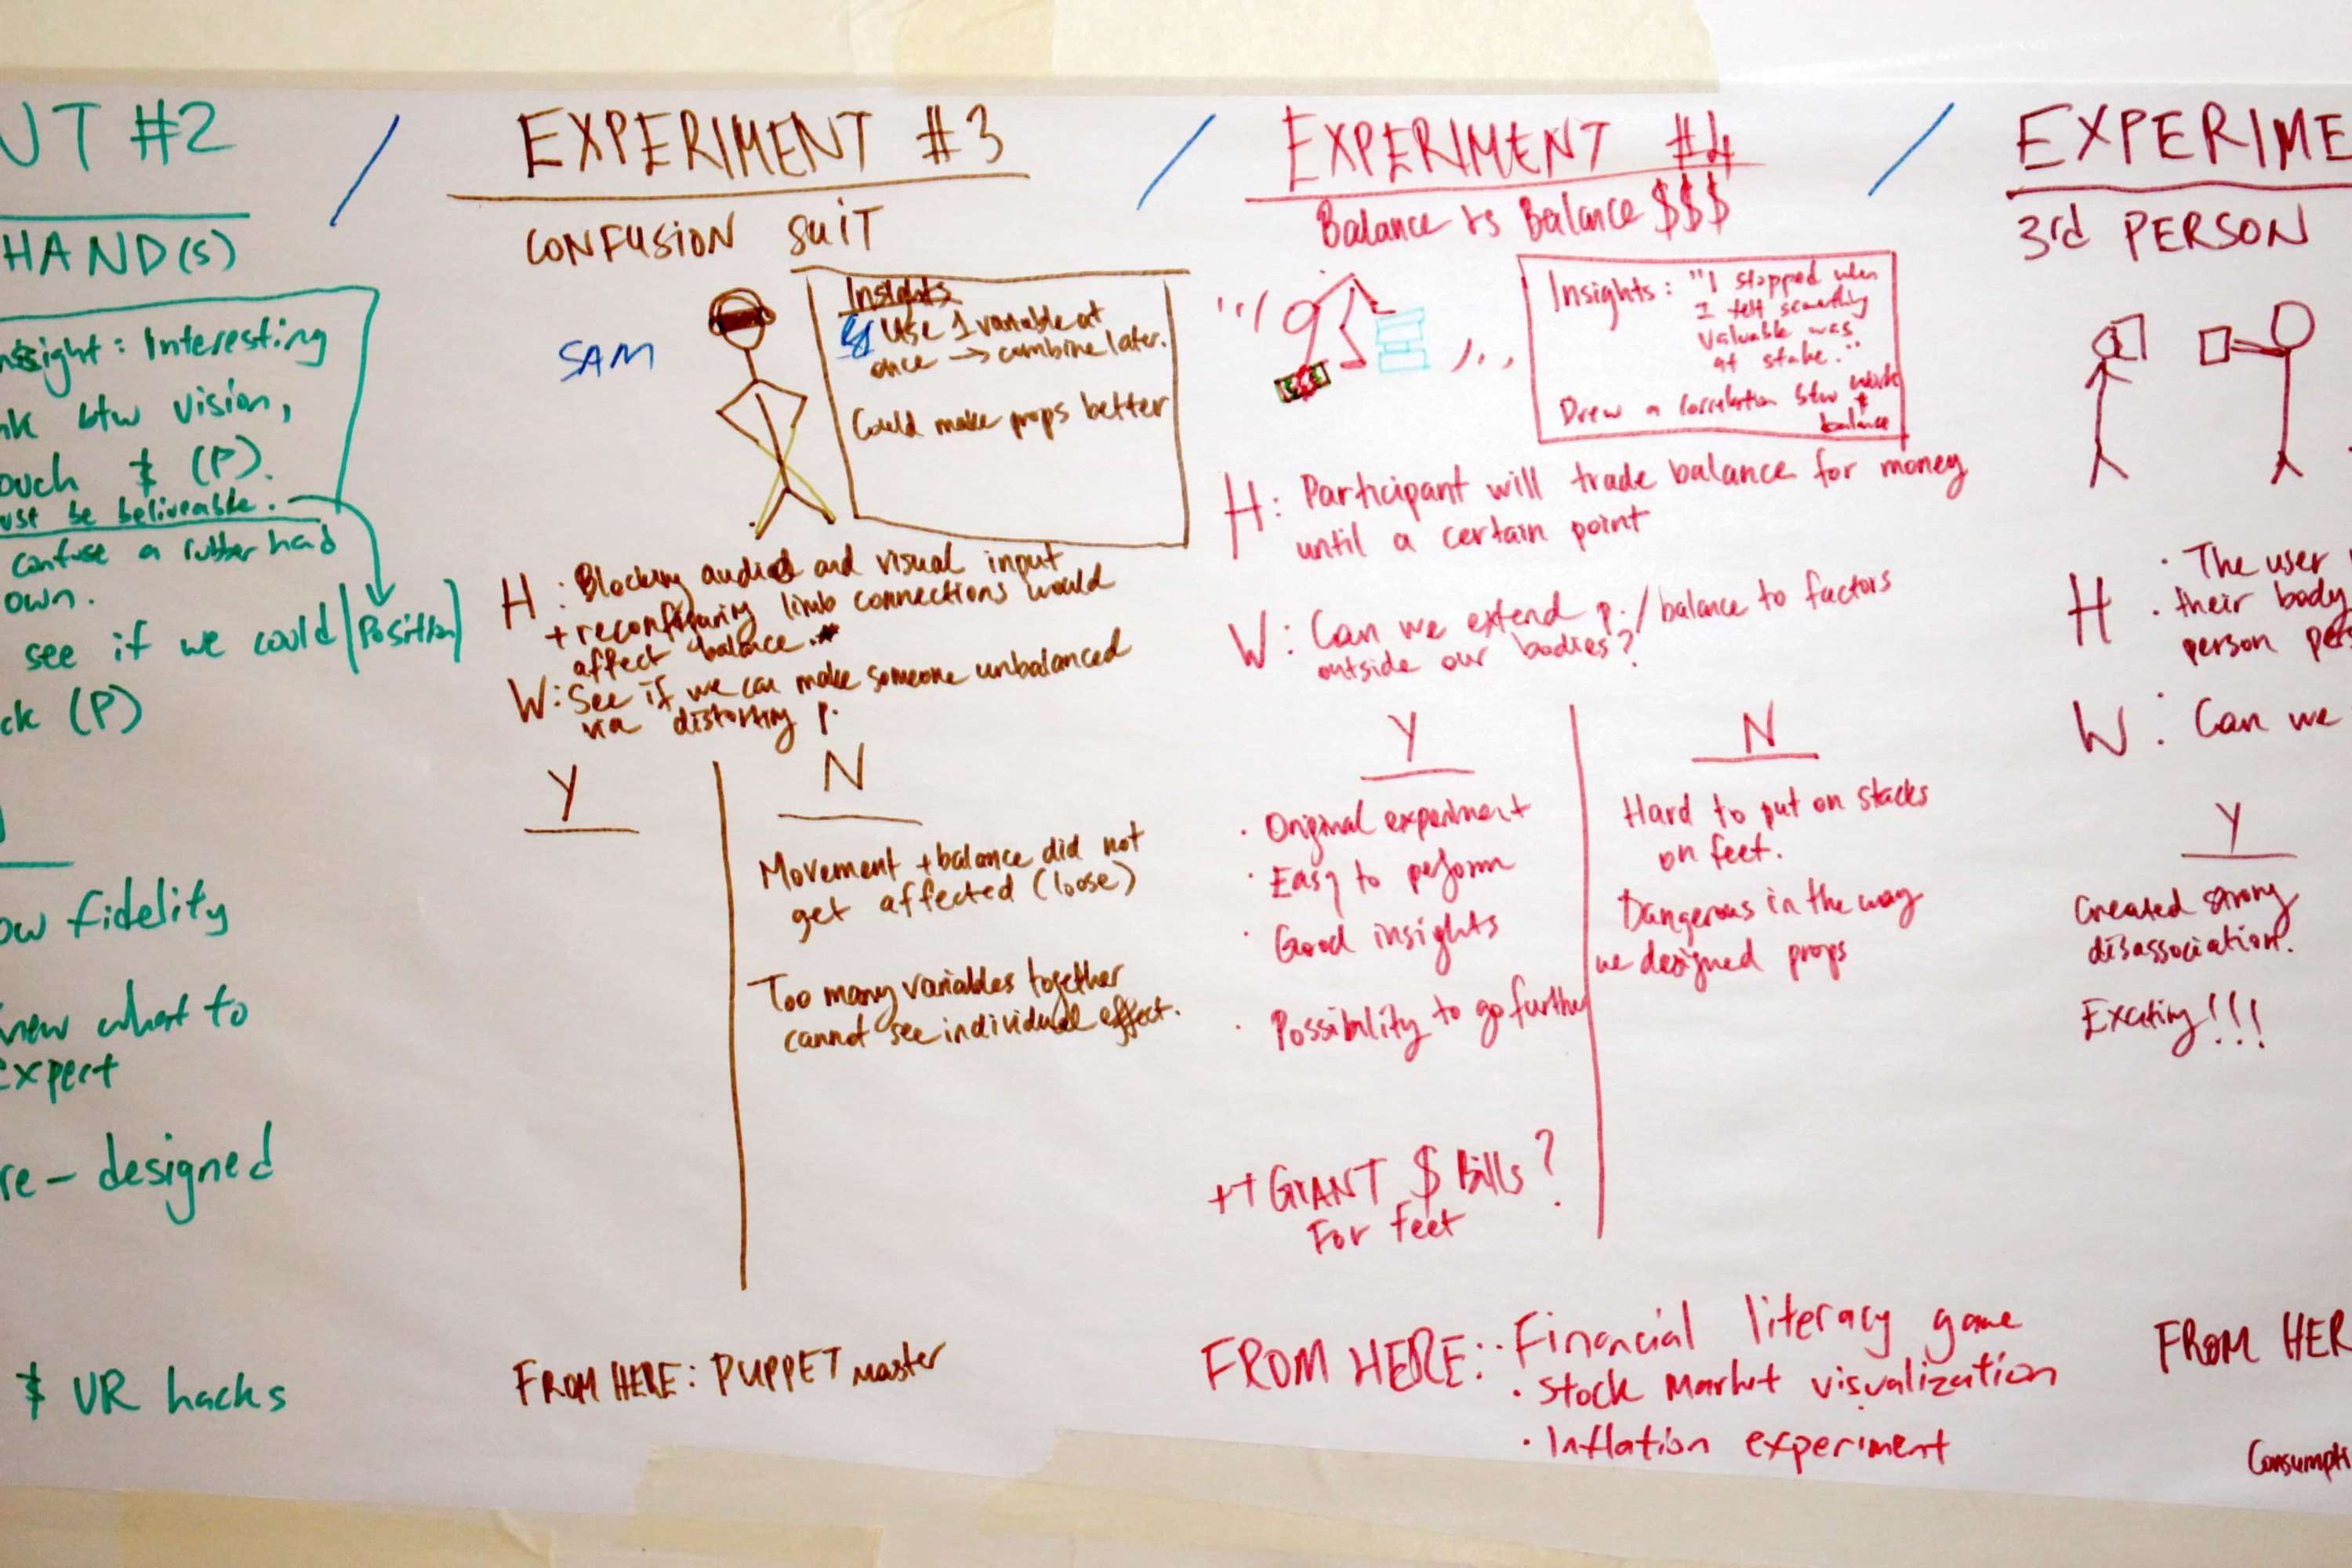 UT #2
HAND(S)
Insight: Interesting
btw vision,
ouch & (P).
ust be beliveable.
confuse a rubber hand
own.
see if we could [Position]
ck (P)
ow fidelity
new what to
expert
re-designed
& VR hacks
/
EXPERIMENT #3
CONFUSION SUIT
SAM
Insights
Use 1 variable at
once → combine later.
Could make props better
H: Blocking audio and visual input
+ reconfiguring limb connections would
affect balance.
W: See if we can make someone unbalanced
via distorting p.
Y
N
Movement + balance did not
get affected (loose)
Too many variables together
cannot see individual effect.
FROM HERE: PUPPET master
/
EXPERIMENT #4
Balance vs Balance $$$
Insights: "I stopped when
I felt something
valuable was
at stake."
Drew a correlation btw work
&
balance
H: Participant will trade balance for money
until a certain point
W: Can we extend p./balance to factors
outside our bodies?
Y
· Original experiment
· Easy to perform
· Good insights
· Possibility to go further
N
Hard to put on stacks
on feet.
Dangerous in the way
we designed props
++ GIANT $ Bills?
For feet
FROM HERE: · Financial literacy game
· Stock Market visualization
· Inflation experiment
/
EXPERIME
3rd PERSON
H · The user
· their body
person pers
W: Can we
Y
Created strong
disassociation.
Exciting!!!
FROM HER
Consumpti